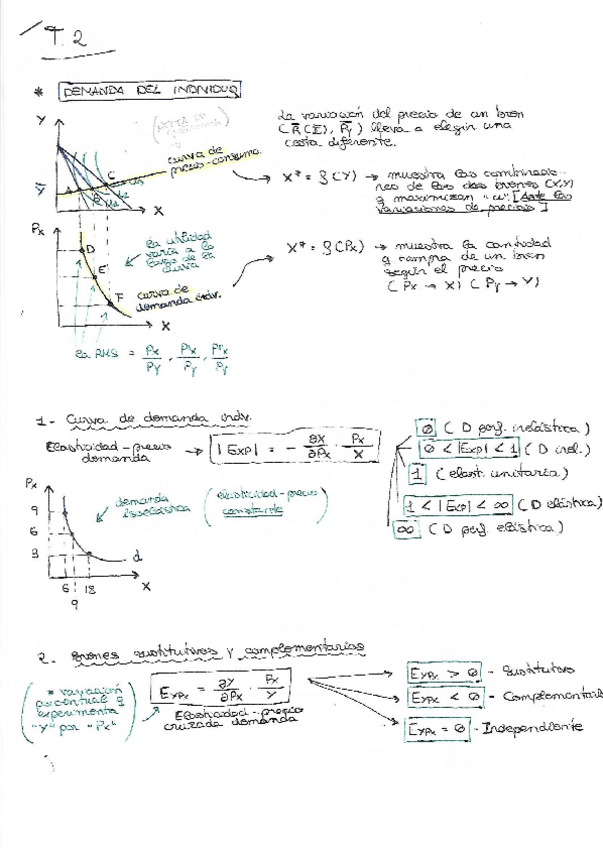 T. 2
* DEMANDA DEL INDIVIDUO
La variación del precio de un bien
lleva a elegir una
cesta diferente.
Y
curva de
precio-consumo
C
Y̅
X
X* = f(Y) → muestra las combinacio-
nes de los dos bienes (X,Y)
q maximizan "u" [Ante las
variaciones de precios]
Px
D
E
F
la utilidad
varía a lo
largo de la
curva
curva de
demanda indv.
X
X* = f(Px) → muestra la cantidad
q compra de un bien
según el precio
(Px → X) (Py → Y)
la RMS = Px/Py , P'x/Py , P''x/Py
1- Curva de demanda indv.
Elasticidad-precio
demanda
→ |Exp| = - ∂X/∂Px · Px/X
0 (D perf. inelástica)
0 < |Exp| < 1 (D inel.)
1 (elast. unitaria)
1 < |Exp| < ∞ (D elástica)
∞ (D perf. elástica)
Px
9
6
3
demanda
isoelástica
(elasticidad-precio
constante)
d
6 18 X
9
2- Bienes sustitutivos y complementarios
(* variación
porcentual q
experimenta
"Y" por "Px")
EYPx = ∂Y/∂Px · Px/Y
Elasticidad-precio
cruzada demanda
EYPx > 0 - Sustitutivo
EYPx < 0 - Complementari
EYPx = 0 - Independiente